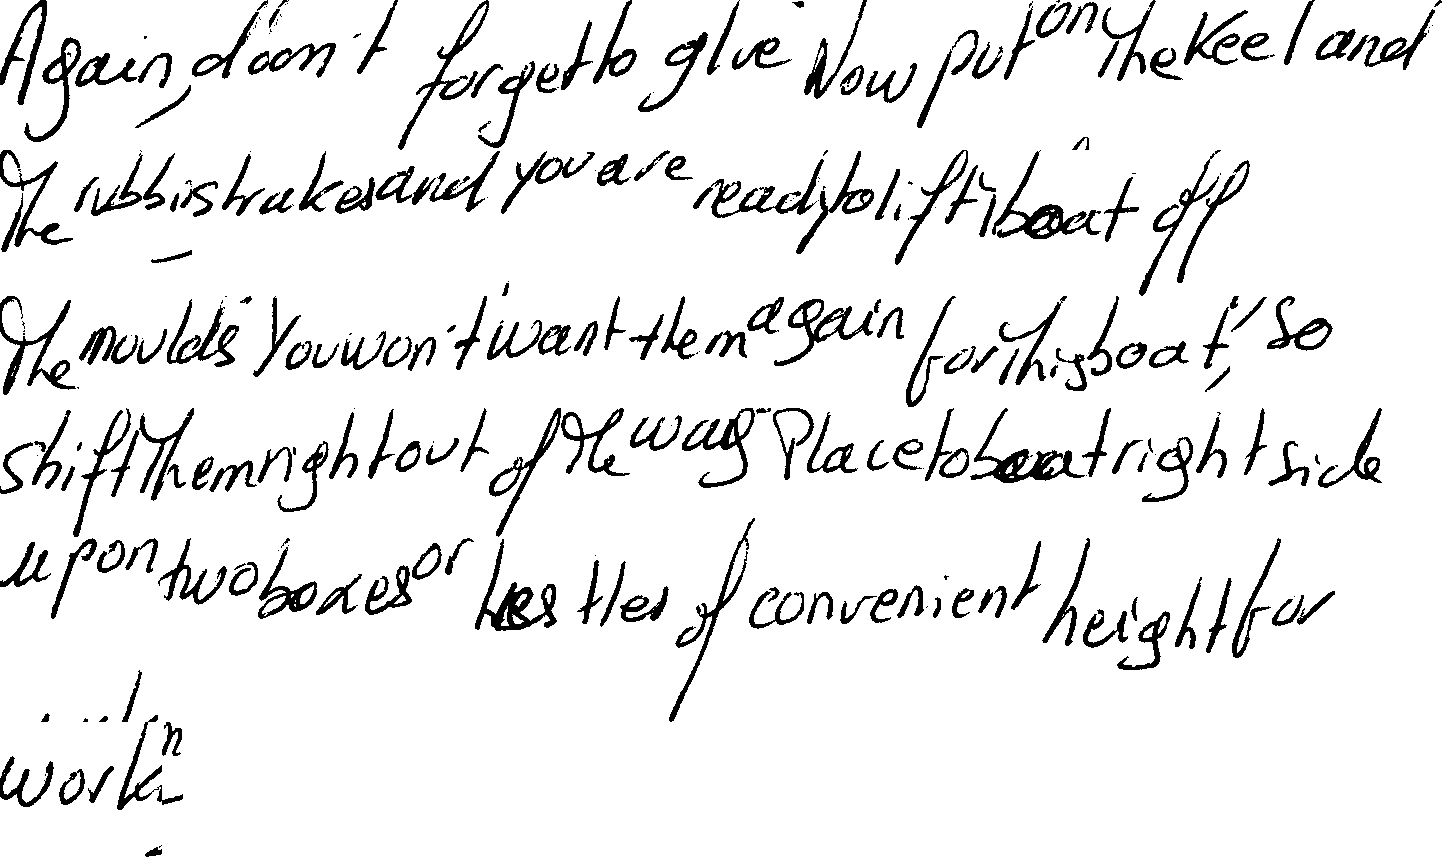 Again, don't forget to glue Now put on the keel and
the rubbistrakes and you are ready to lift boat off
the moulds You won't want them again for this boat, so
shift them right out of the way Place to boat right side
upon two boxes or trestles of convenient height for
work